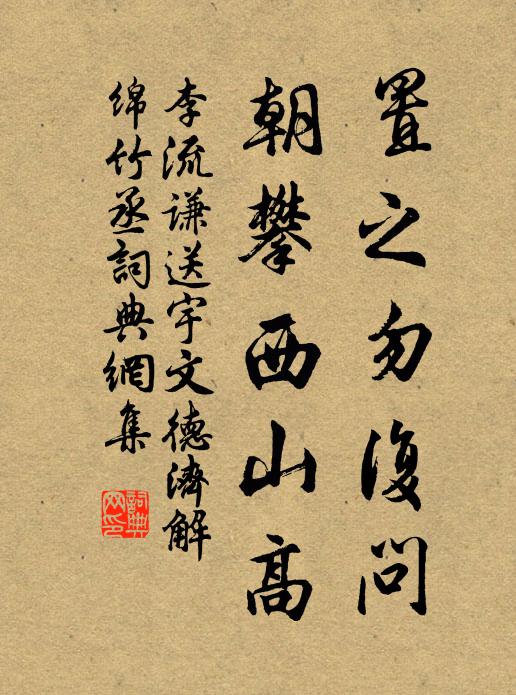 置之勿復問
朝攀西山高
李流謙送宇文德濟解
綿竹丞詞典網集
詞典
网印